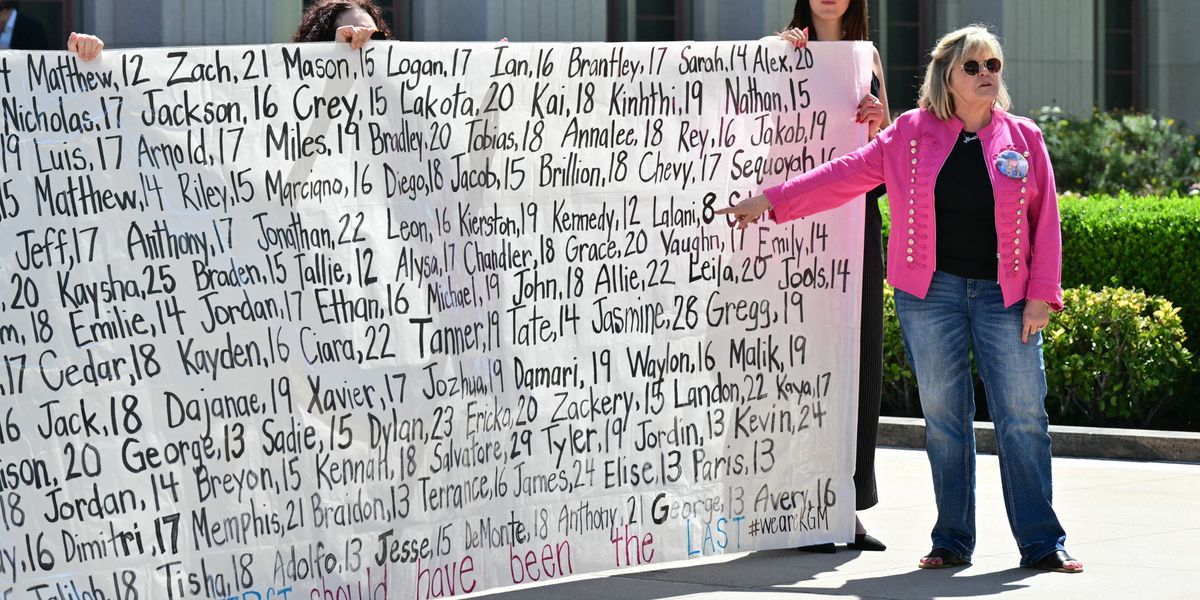 4 Matthew, 12 Zach, 21 Mason, 15 Logan, 17 Ian, 16 Brantley, 17 Sarah, 14 Alex, 20
Nicholas, 17 Jackson, 16 Crey, 15 Lakota, 20 Kai, 18 Kinhthi, 19 Nathan, 15
19 Luis, 17 Arnold, 17 Miles, 19 Bradley, 20 Tobias, 18 Annalee, 18 Rey, 16 Jakob, 19
15 Matthew, 14 Riley, 15 Marciano, 16 Diego, 18 Jacob, 15 Brillion, 18 Chevy, 17 Sequoyah
Jeff, 17 Anthony, 17 Jonathan, 22 Leon, 16 Kierston, 19 Kennedy, 12 Lalani, 8
20 Kaysha, 25 Braden, 15 Tallie, 12 Alysa, 17 Chandler, 18 Grace, 20 Vaughn, 17 Emily, 14
18 Emilie, 14 Jordan, 17 Ethan, 16 Michael, 19 John, 18 Allie, 22 Leila, 20 Jools, 14
17 Cedar, 18 Kayden, 16 Ciara, 22 Tanner, 19 Tate, 14 Jasmine, 28 Gregg, 19
16 Jack, 18 Dajanae, 19 Xavier, 17 Jozhua, 19 Damari, 19 Waylon, 16 Malik, 19
20 George, 13 Sadie, 15 Dylan, 23 Ericka, 20 Zackery, 15 Landon, 22 Kava, 17
18 Jordan, 14 Breyon, 15 Kennah, 18 Salvatore, 29 Tyler, 19 Jordin, 13 Kevin, 24
16 Dimitri, 17 Memphis, 21 Braldon, 13 Terrance, 16 James, 24 Elise, 13 Paris, 13
18 Tisha, 18 Adolfo, 13 Jesse, 15 DeMonte, 18 Anthony, 21 George, 13 Avery, 16
should have been the LAST #weareKGM